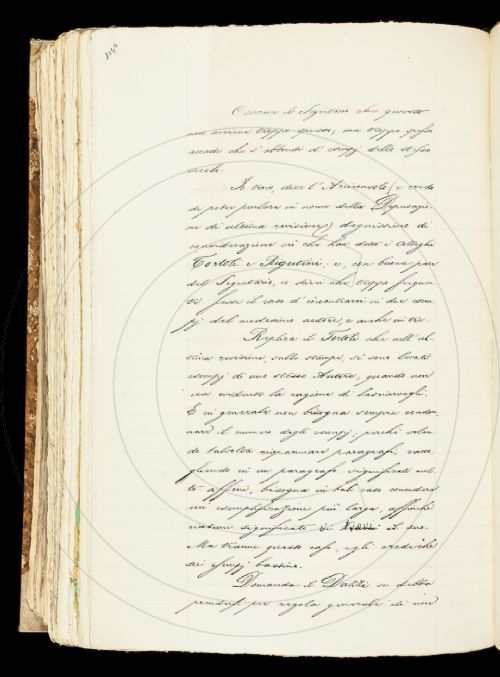 Osserva il Segretario che questo
non avviene troppo spesso, ma troppo spesso
accade che s'abbondi d'esempj dello stesso
secolo.
Io trovo, dice l'Arciconsolo (e credo
di poter parlare in nome della Deputazio-
ne di ultima revisione) degnissimo di
considerazione ciò che han detto i Colleghi
Tortoli e Rigutini; e, con buona pace
del Segretario, si dirà che troppo frequen-
te fosse il caso d'incontrarvi in due esem-
pj del medesimo autore, e anche in tre.
Replica il Tortoli che nell'ul-
tima revisione, sulle stampe, si sono levati
esempj di uno stesso Autore, quando non
era evidente la ragione di lasciarvegli.
E in generale non bisogna sempre condan-
nare il numero degli esempj; perchè volen-
do talvolta risparmiare paragrafi, racco-
gliendo in un paragrafo significati mol-
to affini, bisogna in tal caso concedere
un'esemplificazione più larga, affinchè
ciascun significato il suo.
Ma tranne questo caso, egli crede che
sei esempj bastino.
Domanda il Dazzi se debba
prendersi per regola generale di non